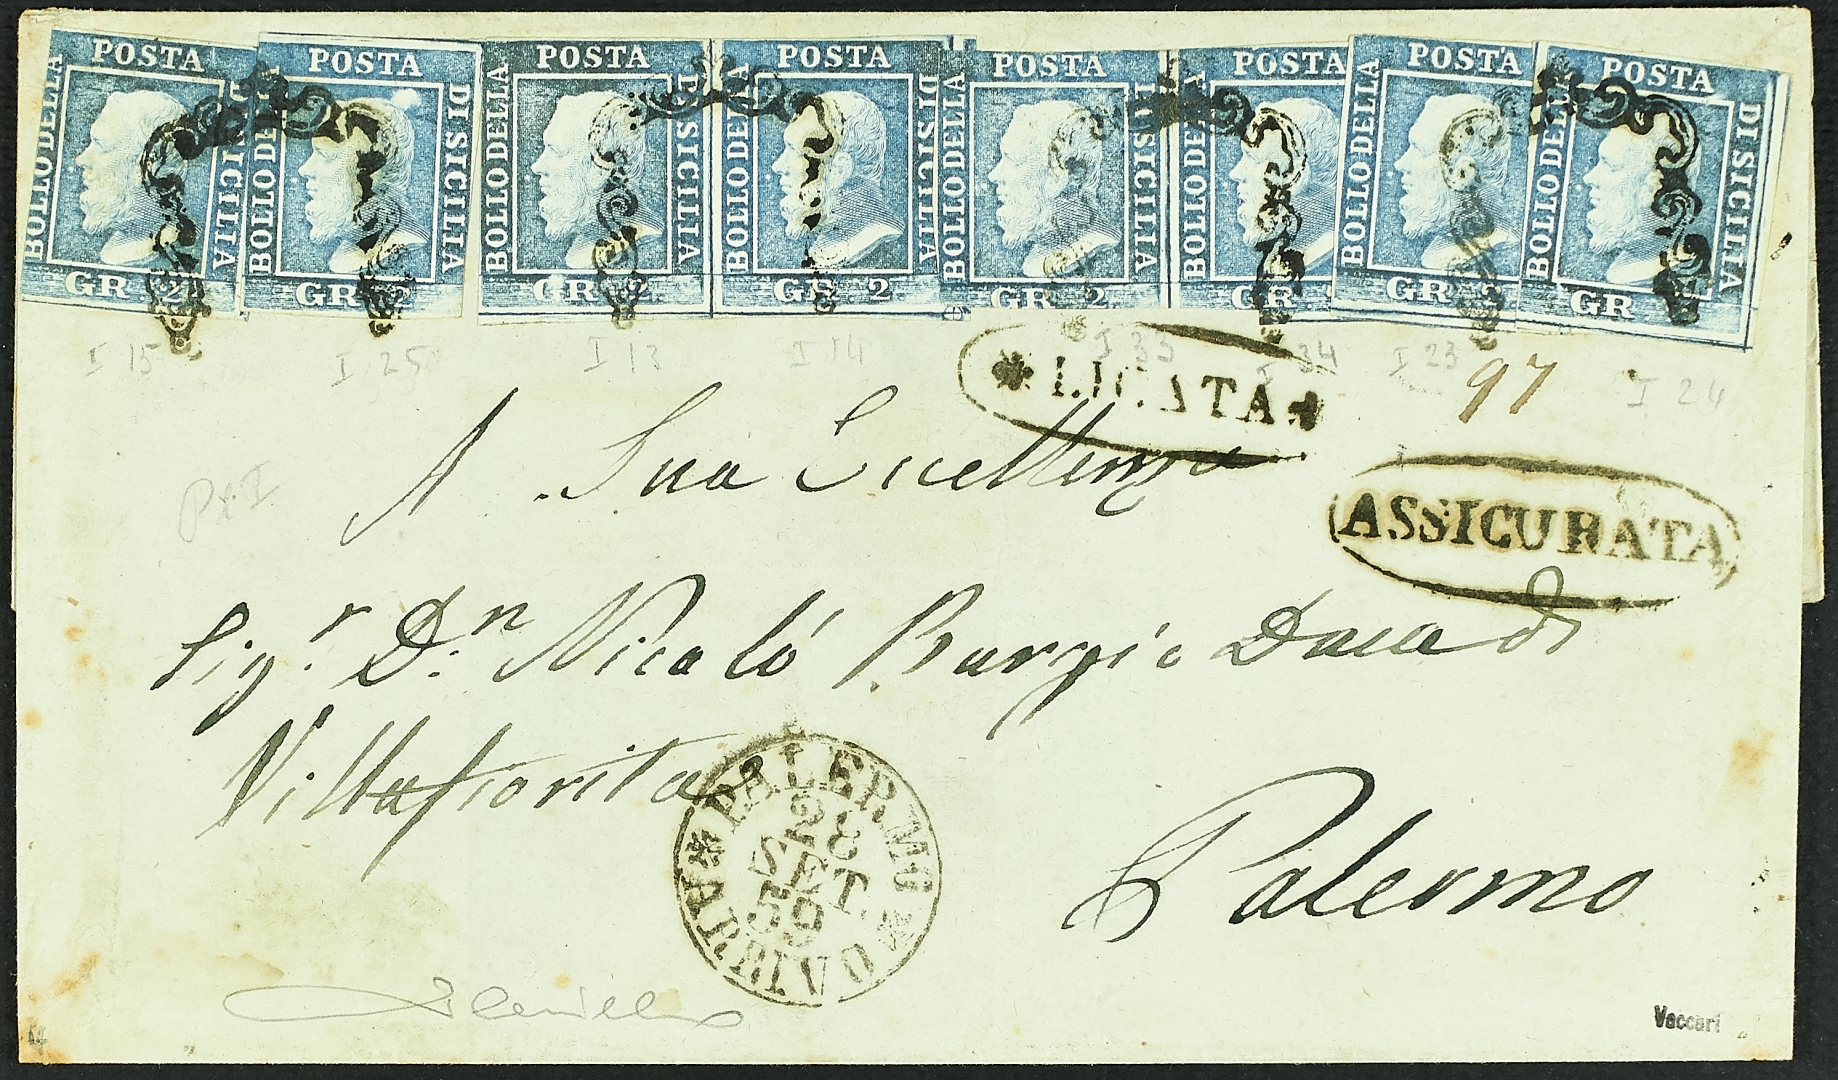 POSTA POSTA POSTA POSTA POSTA POSTA POSTA POSTA
BOLLO DELLA DI SICILIA BOLLO DELLA DI SICILIA BOLLO DELLA DI SICILIA BOLLO DELLA DI SICILIA BOLLO DELLA DI SICILIA BOLLO DELLA BOLLO DELLA BOLLO DELLA DI SICILIA
GR 2 GR 2 GR 2 GR 2 GR 2 GR GR GR
I 15 I 25 I 13 I 14 I 33 I 34 I 23 I 24
97
* LICATA *
A Sua Eccellenza
Pl I
ASSICURATA
Sig.r D.n Nicoló Burgio Duca di
Villafiorita
PALERMO * D'ARRIVO *
28
SET.
59
Palermo
Vaccari